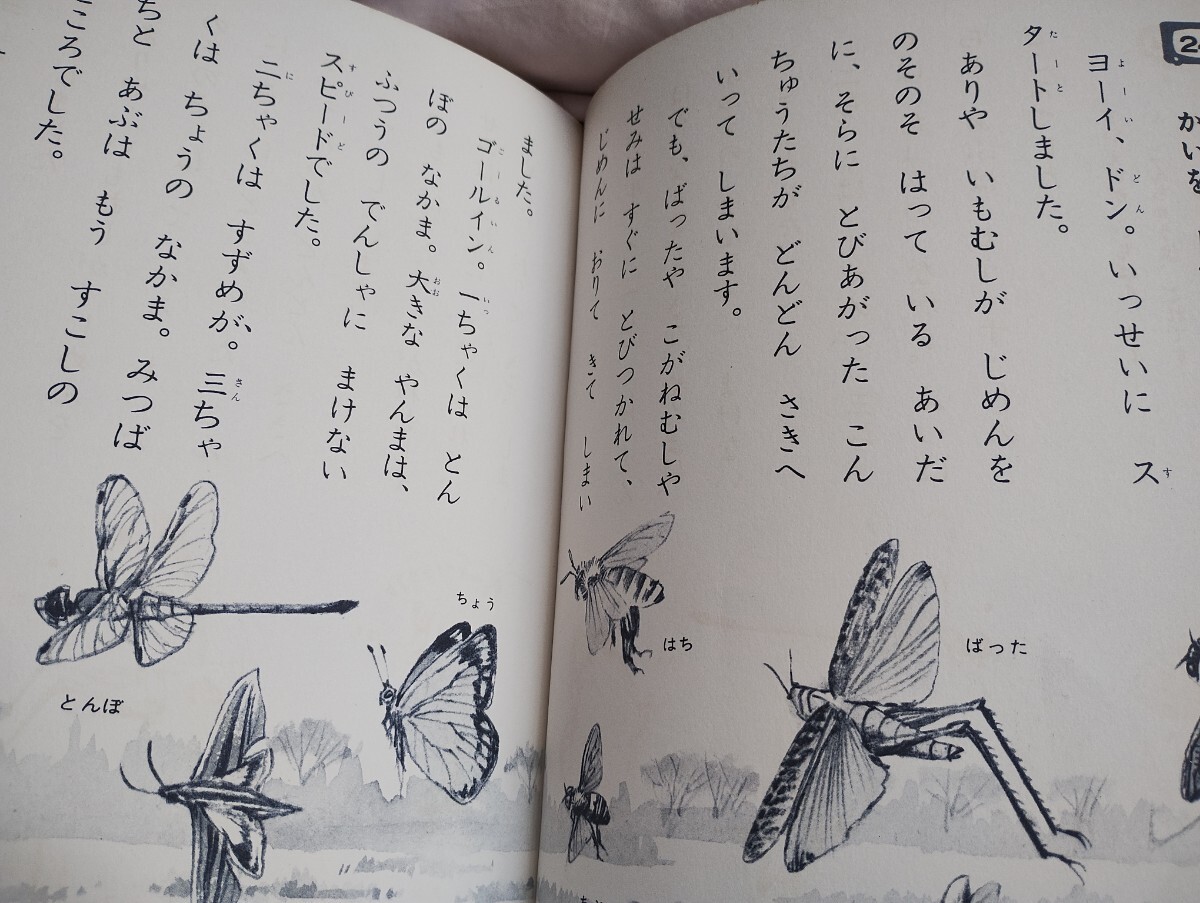 2
かいを
ヨーイ、ドン。いっせいに ス
よーい どん す
タートしました。
たーと
ありや いもむしが じめんを
のそのそ はって いる あいだ
に、そらに とびあがった こん
ちゅうたちが どんどん さきへ
いって しまいます。
でも、ばったや こがねむしや
せみは すぐに とびつかれて、
じめんに おりて きて しまい
ばった
はち
ました。
ゴールイン。一ちゃくは とん
ごーるいん いっ
ぼの なかま。大きな やんまは、
おお
ふつうの でんしゃに まけない
スピードでした。
すぴーど
二ちゃくは すずめが、三ちゃ
に さん
くは ちょうの なかま。みつば
ちと あぶは もう すこしの
ころでした。
ちょう
とんぼ